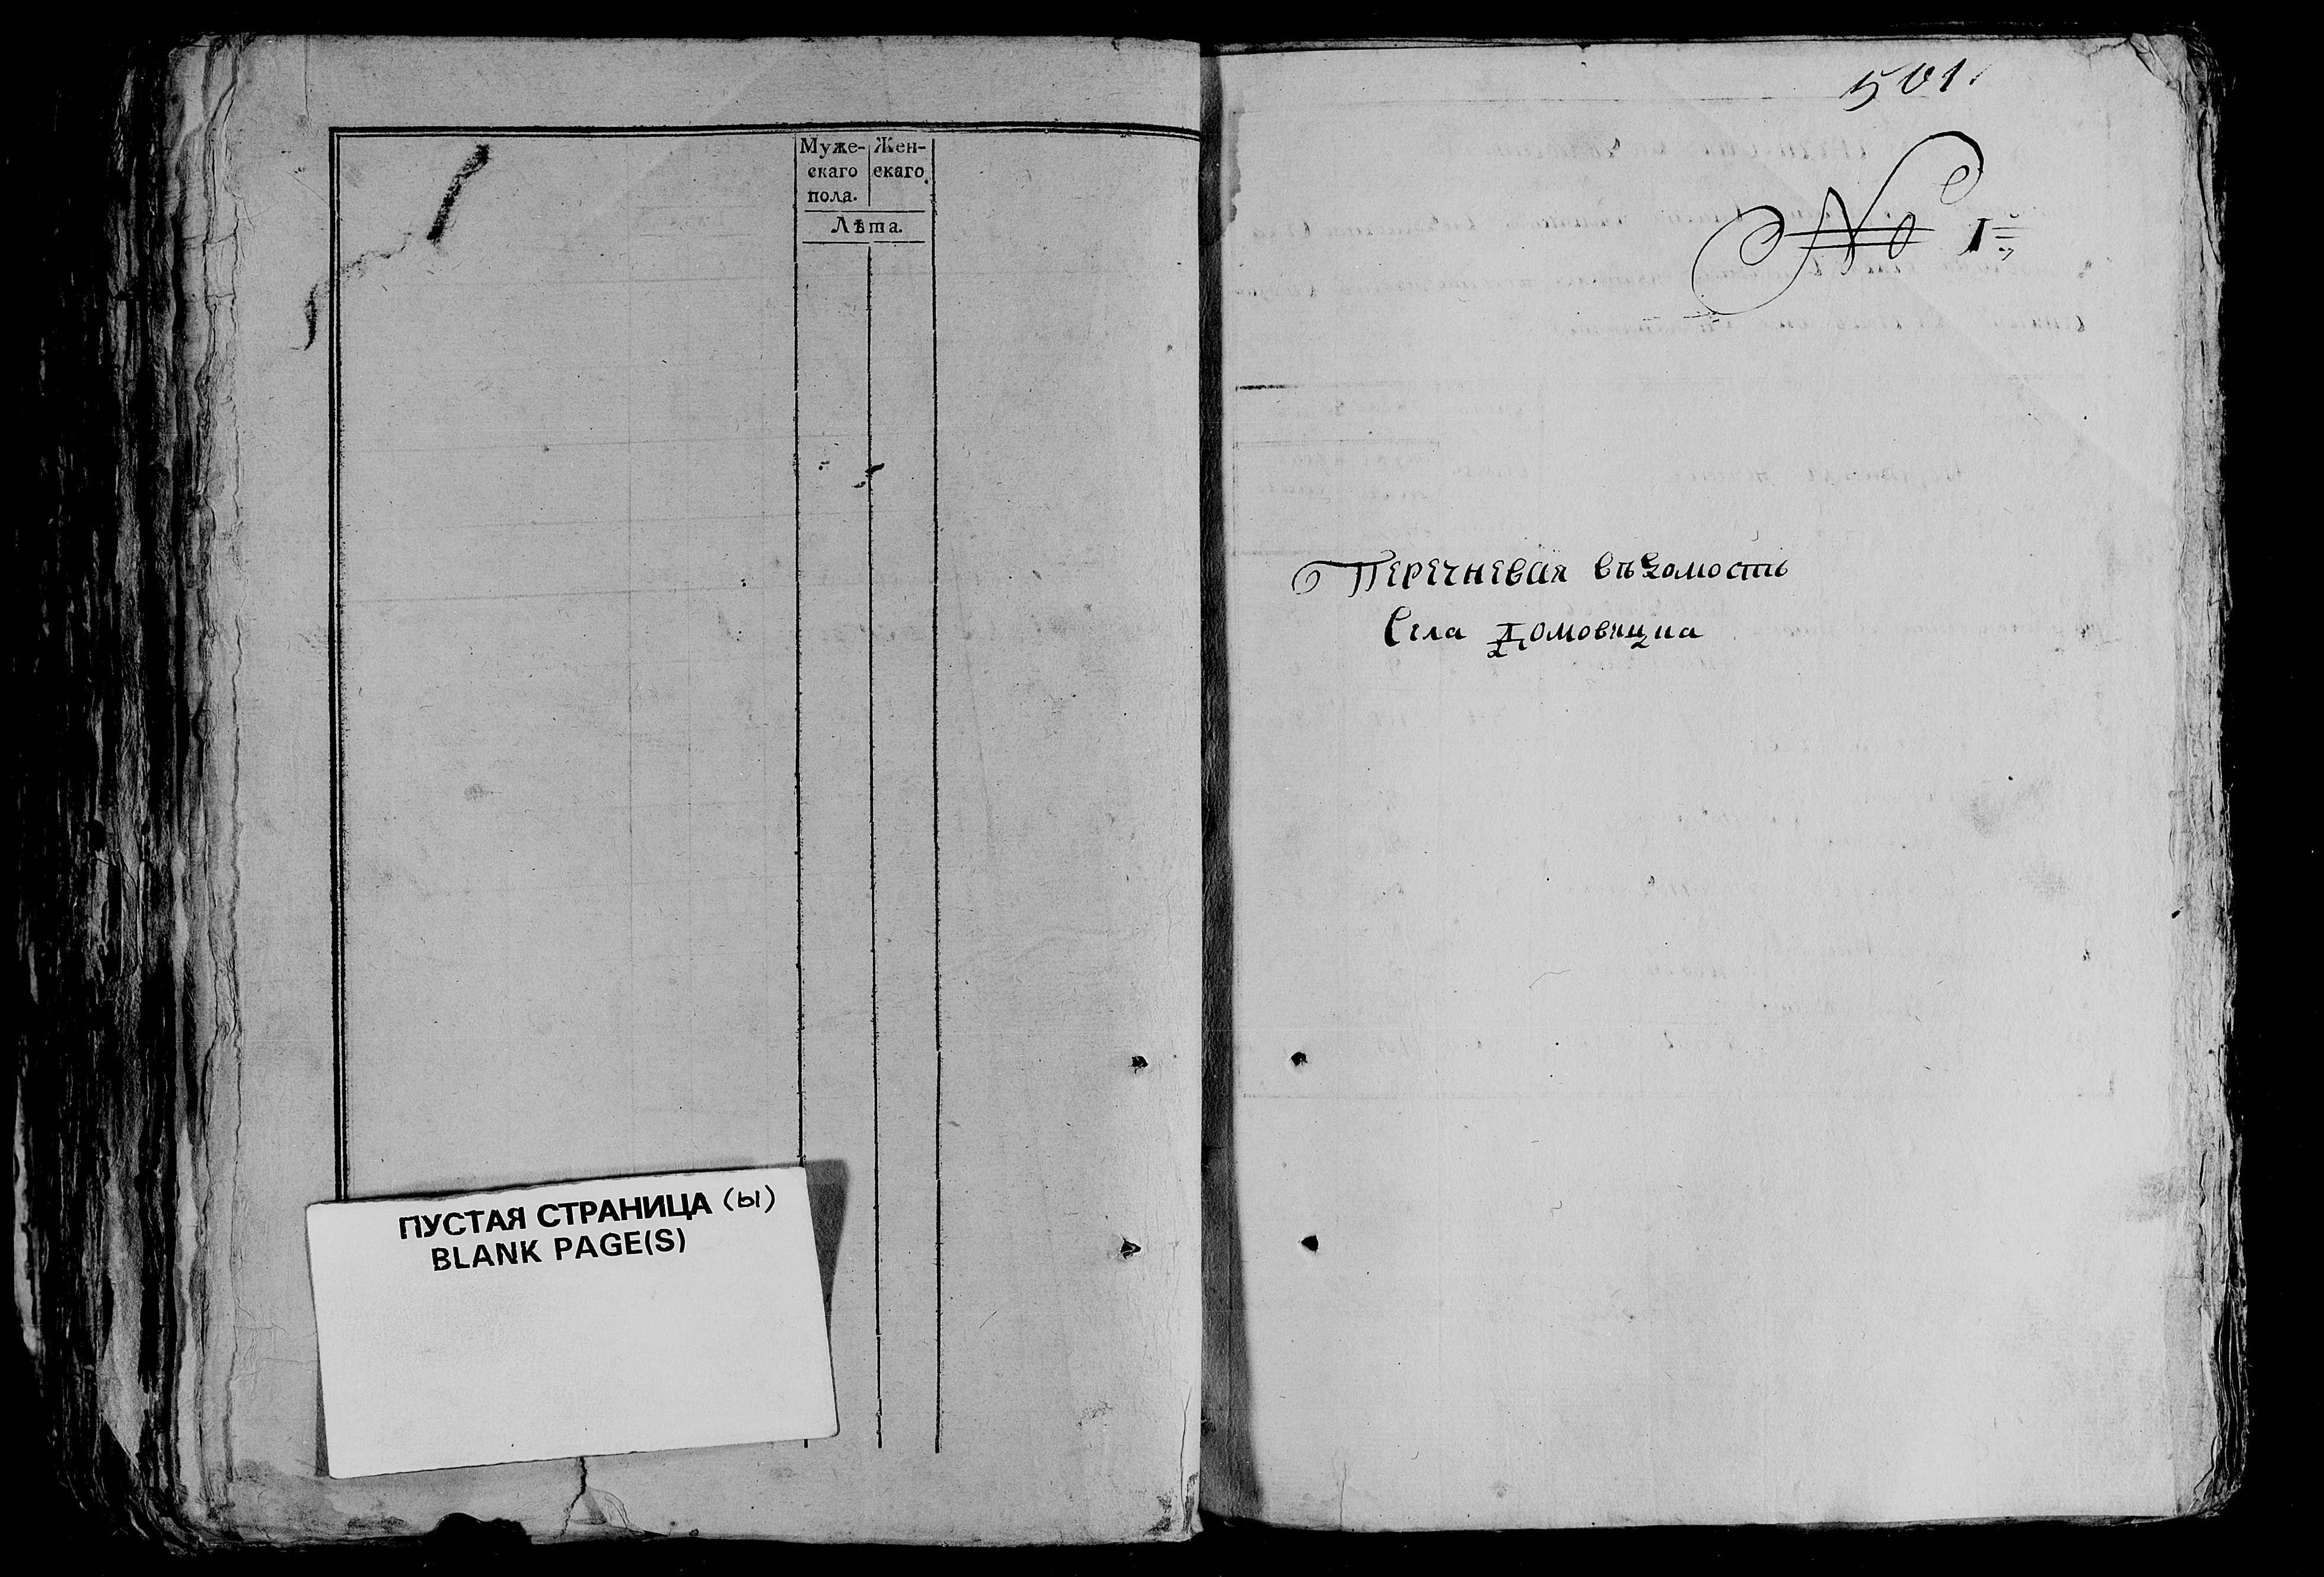 Муже- Жен-
скаго скаго
пола.
Лѣта.
ПУСТАЯ СТРАНИЦА (ы)
BLANK PAGE(S)
501.
№ 1й
Перечневая вѣдомость
Села Домовицна